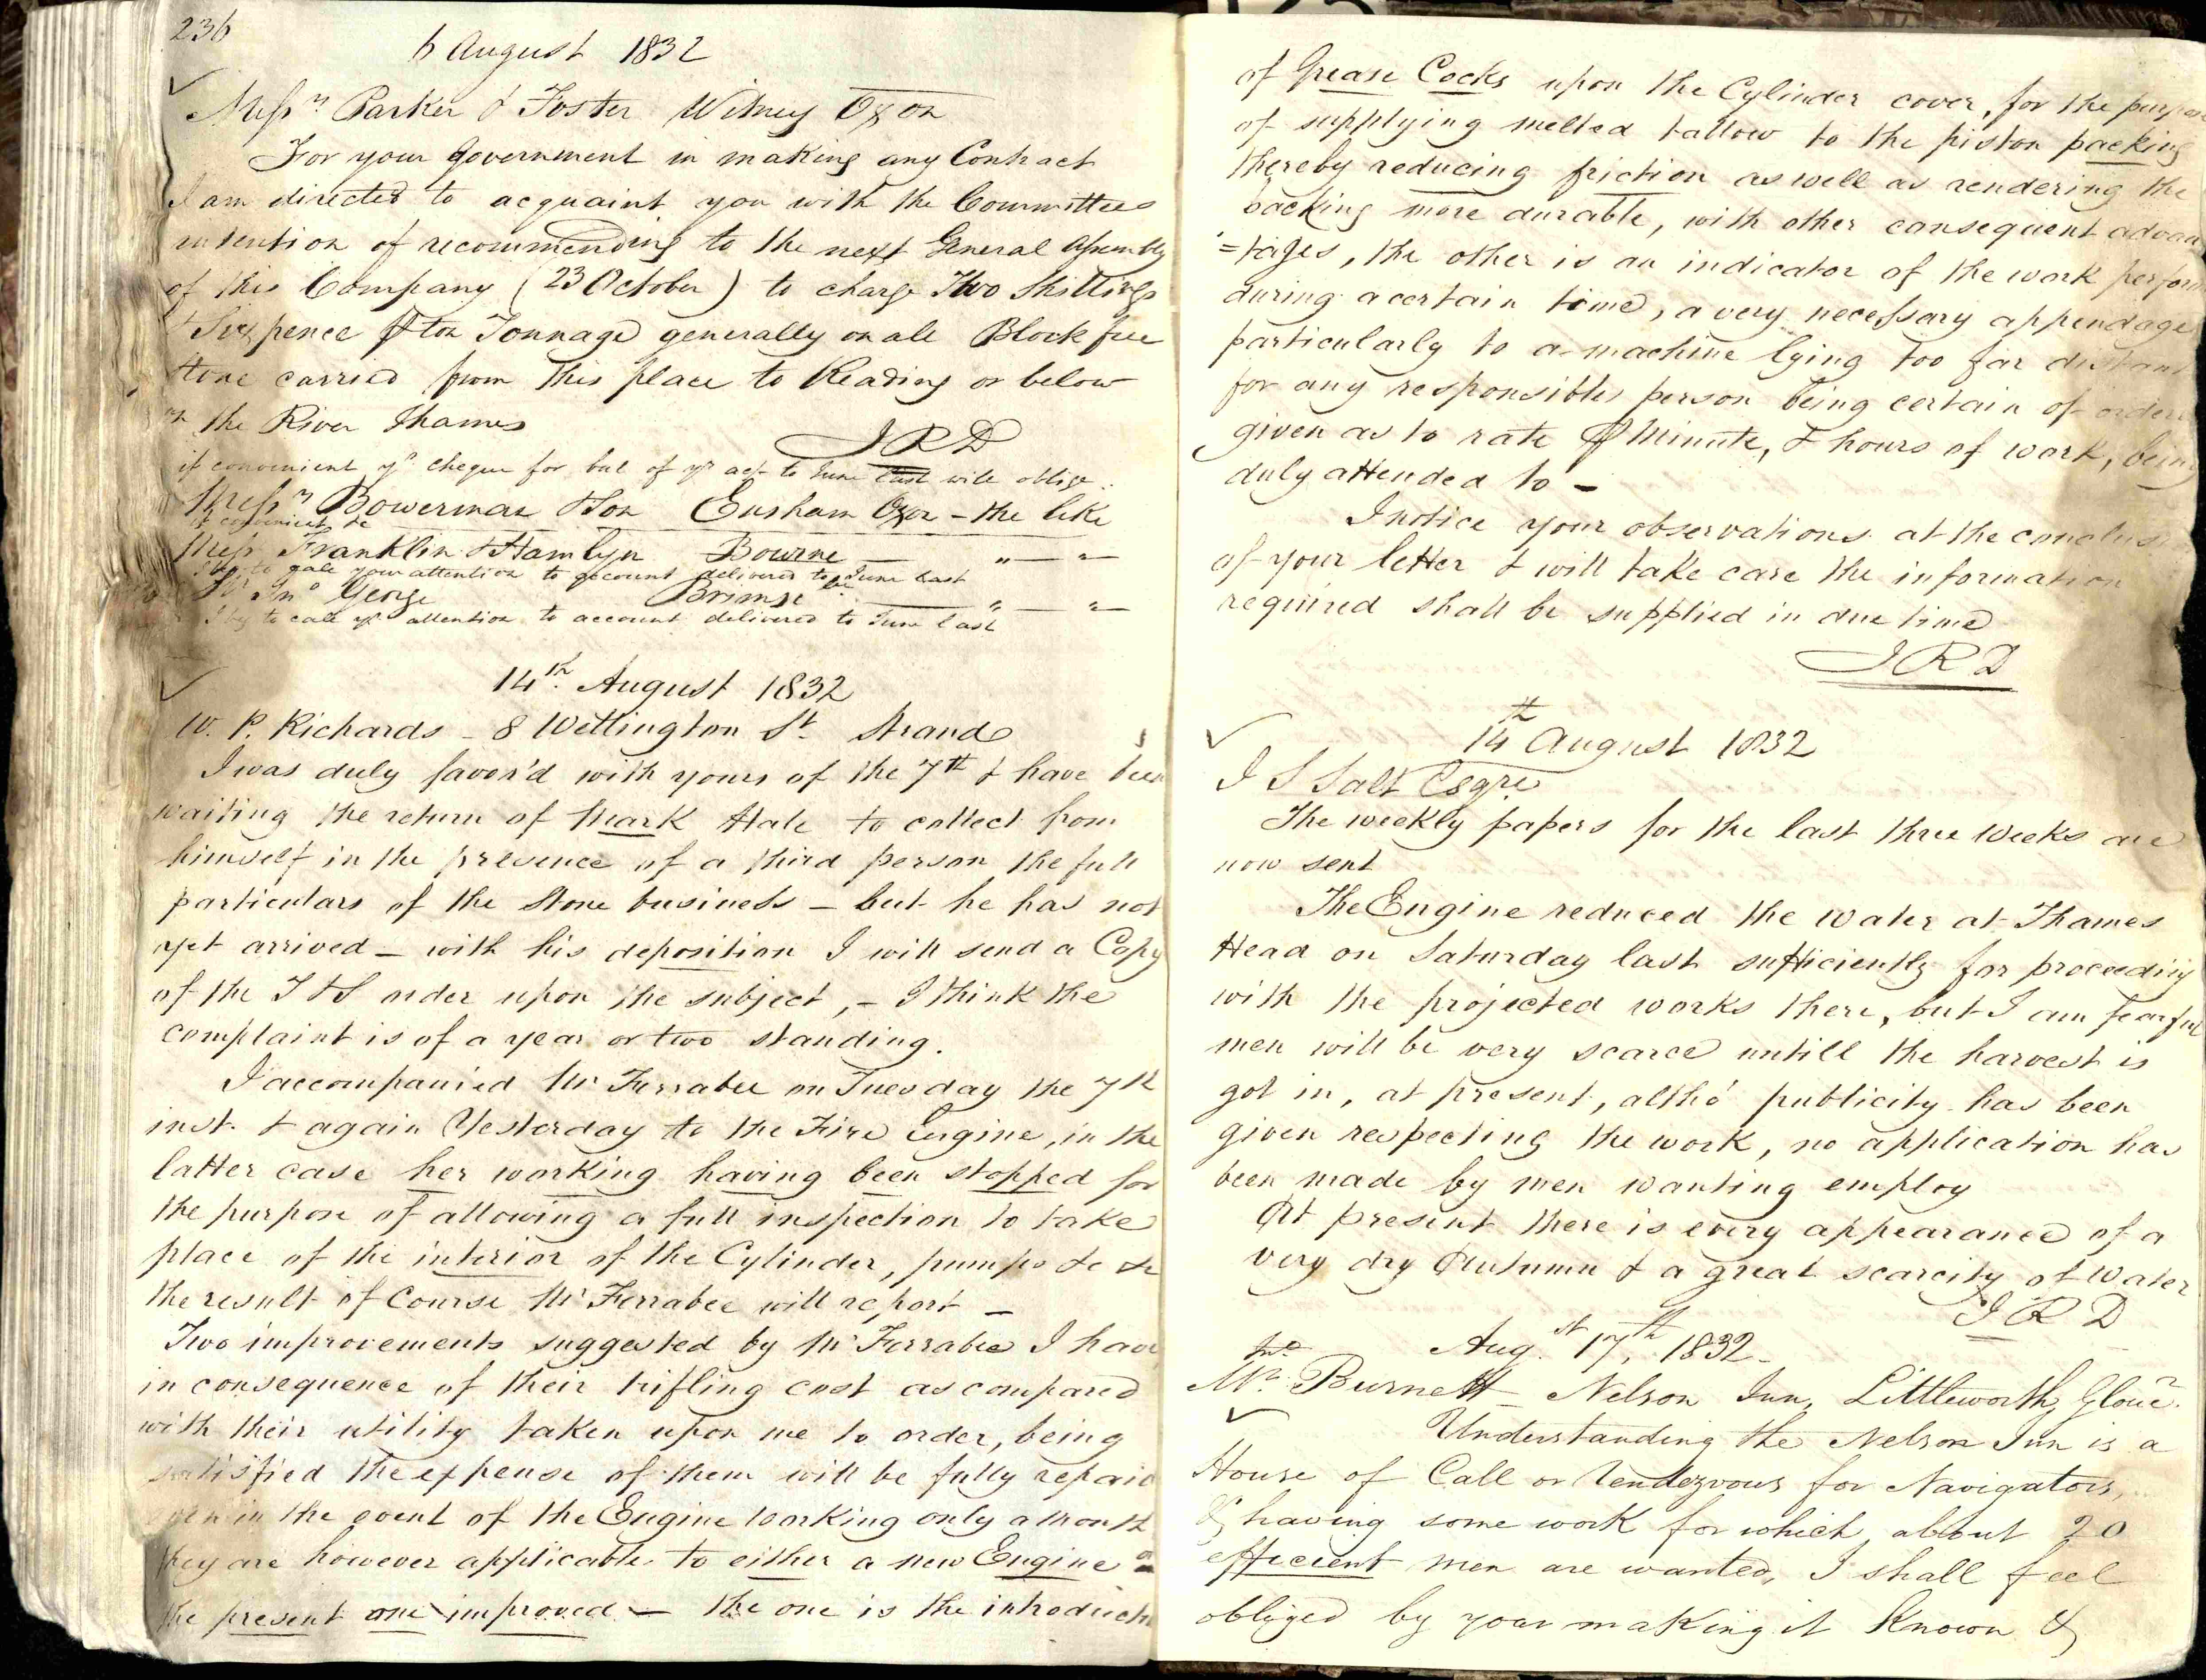 236
6 August 1832
Messrs Parker & Foster Witney Oxon
For your Government in making any Contract
I am directed to acquaint you with the Committees
intention of recommending to the next General Assembly
of this Company (23 October) to charge Two Shillings
& Sixpence ⅌ ton Tonnage generally on all Block free
Stone carried from this place to Reading or below
on the River Thames
J R D
if convenient yr cheque for bal of yr act to June last will oblige
Messrs Bowerman & Son Ensham Oxon - the like
if convenient &c
Messrs Franklin & Hamlyn Bourne — " — "
I beg to call your attention to account delivered to June last
Mr Jno George Brimscbe — " — "
I beg to call yr attention to account delivered to June last
14th August 1832
W. P. Richards - 8 Wellington St. Strand
I was duly favor'd with yours of the 7th & have been
waiting the return of Mark Hale to collect from
himself in the presence of a third person the full
particulars of the Stone business - but he has not
yet arrived - with his deposition I will send a Copy
of the T & S order upon the subject, - I think the
complaint is of a year or two standing.
I accompanied Mr Ferrabee on Tuesday the 7th
inst. & again Yesterday to the Fire Engine, in the
latter case her working having been stopped for
the purpose of allowing a full inspection to take
place of the interior of the Cylinder, pumps &c &c
the result of Course Mr Ferrabee will report -
Two improvements suggested by Mr Ferrabee I have
in consequence of their trifling cost as compared
with their utility taken upon me to order, being
satisfied the expense of them will be fully repaid
even in the event of the Engine working only a month
they are however applicable to either a new Engine or
the present one improved - the one is the introduction
of Grease Cocks upon the Cylinder cover, for the purpose
of supplying melted tallow to the piston packing
thereby reducing friction as well as rendering the
packing more durable, with other consequent advan
=tages, the other is an indicator of the work perform
during a certain time, a very necessary appendage
particularly to a machine lying too far distant
for any responsible person being certain of orders
given as to rate ⅌ Minute, & hours of work, being
duly attended to -
I notice your observations at the conclusion
of your letter & will take care the information
required shall be supplied in due time
J R D
14th August 1832
J S Salt Esqre
The weekly papers for the last three Weeks are
now sent
The Engine reduced the water at Thames
Head on Saturday last sufficiently for proceeding
with the projected works there, but I am fearful
men will be very scarce untill the harvest is
got in, at present, altho' publicity has been
given respecting the work, no application has
been made by men wanting employ
At present there is every appearance of a
very dry Autumn & a great scarcity of Water
J R D
Augst 17th, 1832.
Mr Burnett - Nelson Inn, Littleworth, Glouc.
Understanding the Nelson Inn is a
House of Call or Rendezvous for Navigators,
& having some work for which about 20
efficient men are wanted, I shall feel
obliged by your making it known &